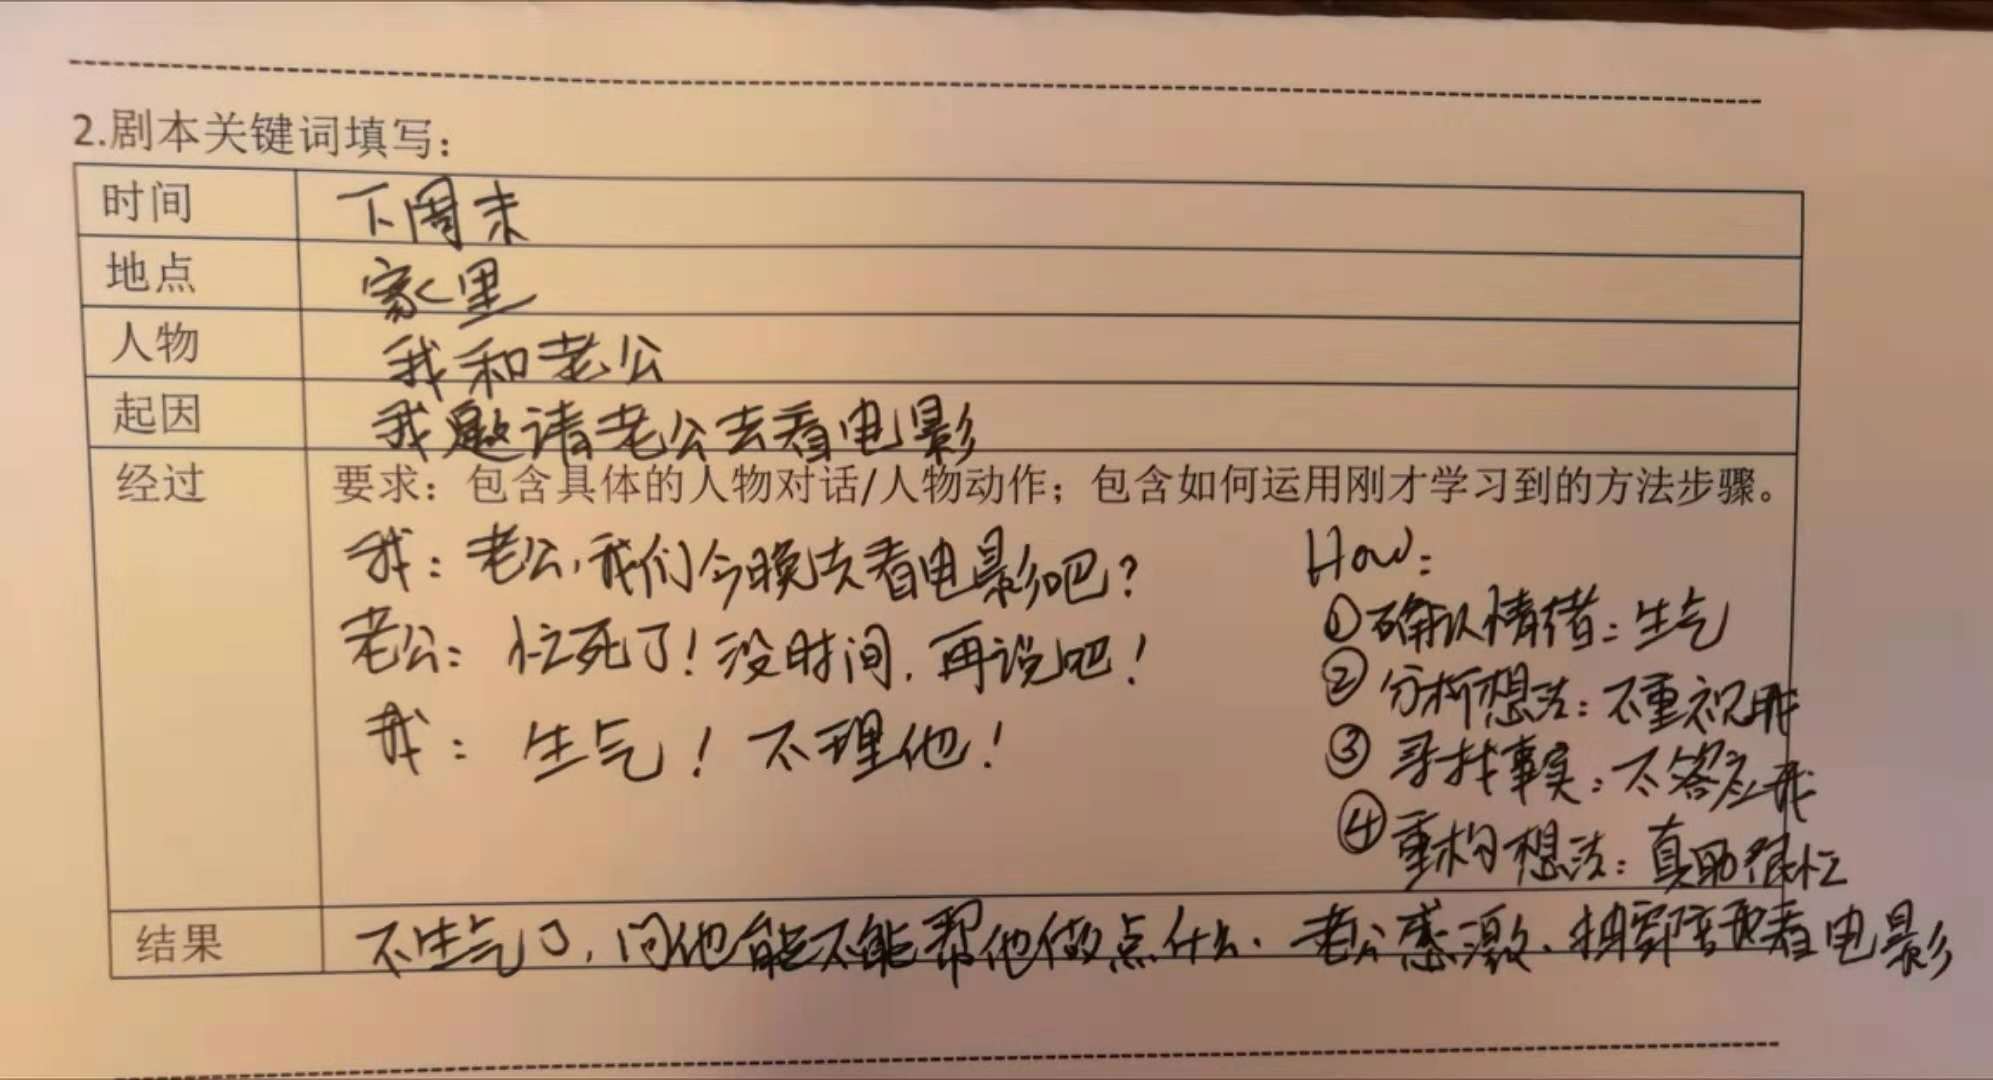 2.剧本关键词填写：
时间 下周末
地点 家里
人物 我和老公
起因 我邀请老公去看电影
经过 要求：包含具体的人物对话/人物动作；包含如何运用刚才学习到的方法步骤。
我：老公，我们今晚去看电影吧？
老公：忙死了！没时间，再说吧！
我：生气！不理他！
How：
①确认情绪：生气
②分析想法：不重视我
③寻找事实：不答应我
④重构想法：真的很忙
结果 不生气了，问他能不能帮他做点什么．老公感激．抽空陪我看电影